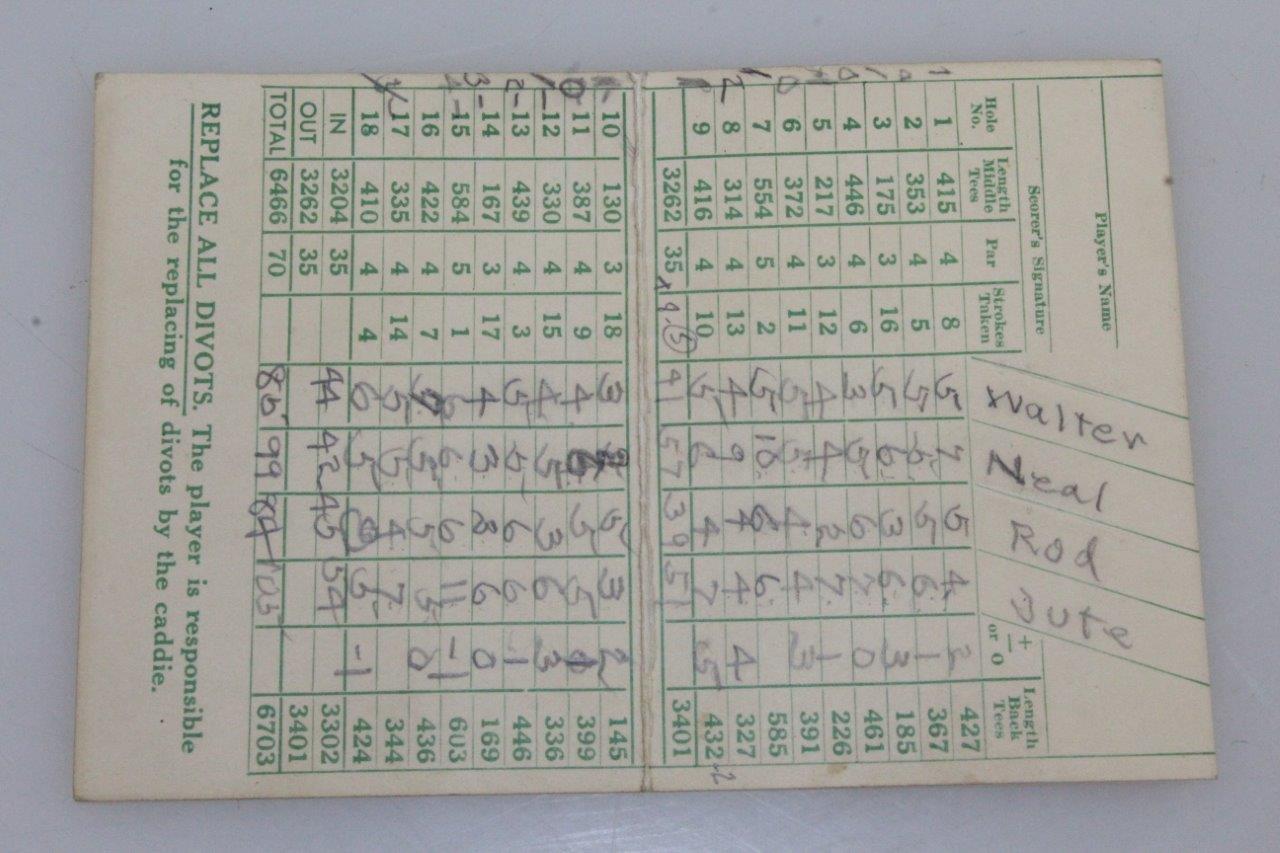 Player's Name
Scorer's Signature
Hole No. Length Middle Tees Par Strokes Taken Walter Neal Rod + – or o Length Back Tees
1 415 4 8 5 7 5 4 2 427
2 353 4 5 5 5 5 6 1 367
3 175 3 16 5 6 3 6 3 185
4 446 4 6 3 5 6 7 0 461
5 217 3 12 4 4 2 7 1 226
6 372 4 11 5 5 4 4 3 391
7 554 5 2 5 10 6 6 585
8 314 4 13 4 9 4 4 4 327
9 416 4 10 5 6 4 7 5 432
3262 35 41 57 39 51 3401
10 130 3 18 3 5 3 2 145
11 387 4 9 4 5 5 399
12 330 4 15 4 5 3 6 3 336
13 439 4 3 5 5 6 6 -1 446
14 167 3 17 4 3 6 0 169
15 584 5 1 6 6 6 11 -1 603
16 422 4 7 7 5 5 5 0 436
17 335 4 14 5 5 4 7 344
18 410 4 4 6 5 5 424
IN 3204 35 44 42 45 54 -1 3302
OUT 3262 35 3401
TOTAL 6466 70 85 99 84 105 6703
REPLACE ALL DIVOTS. The player is responsible
for the replacing of divots by the caddie.